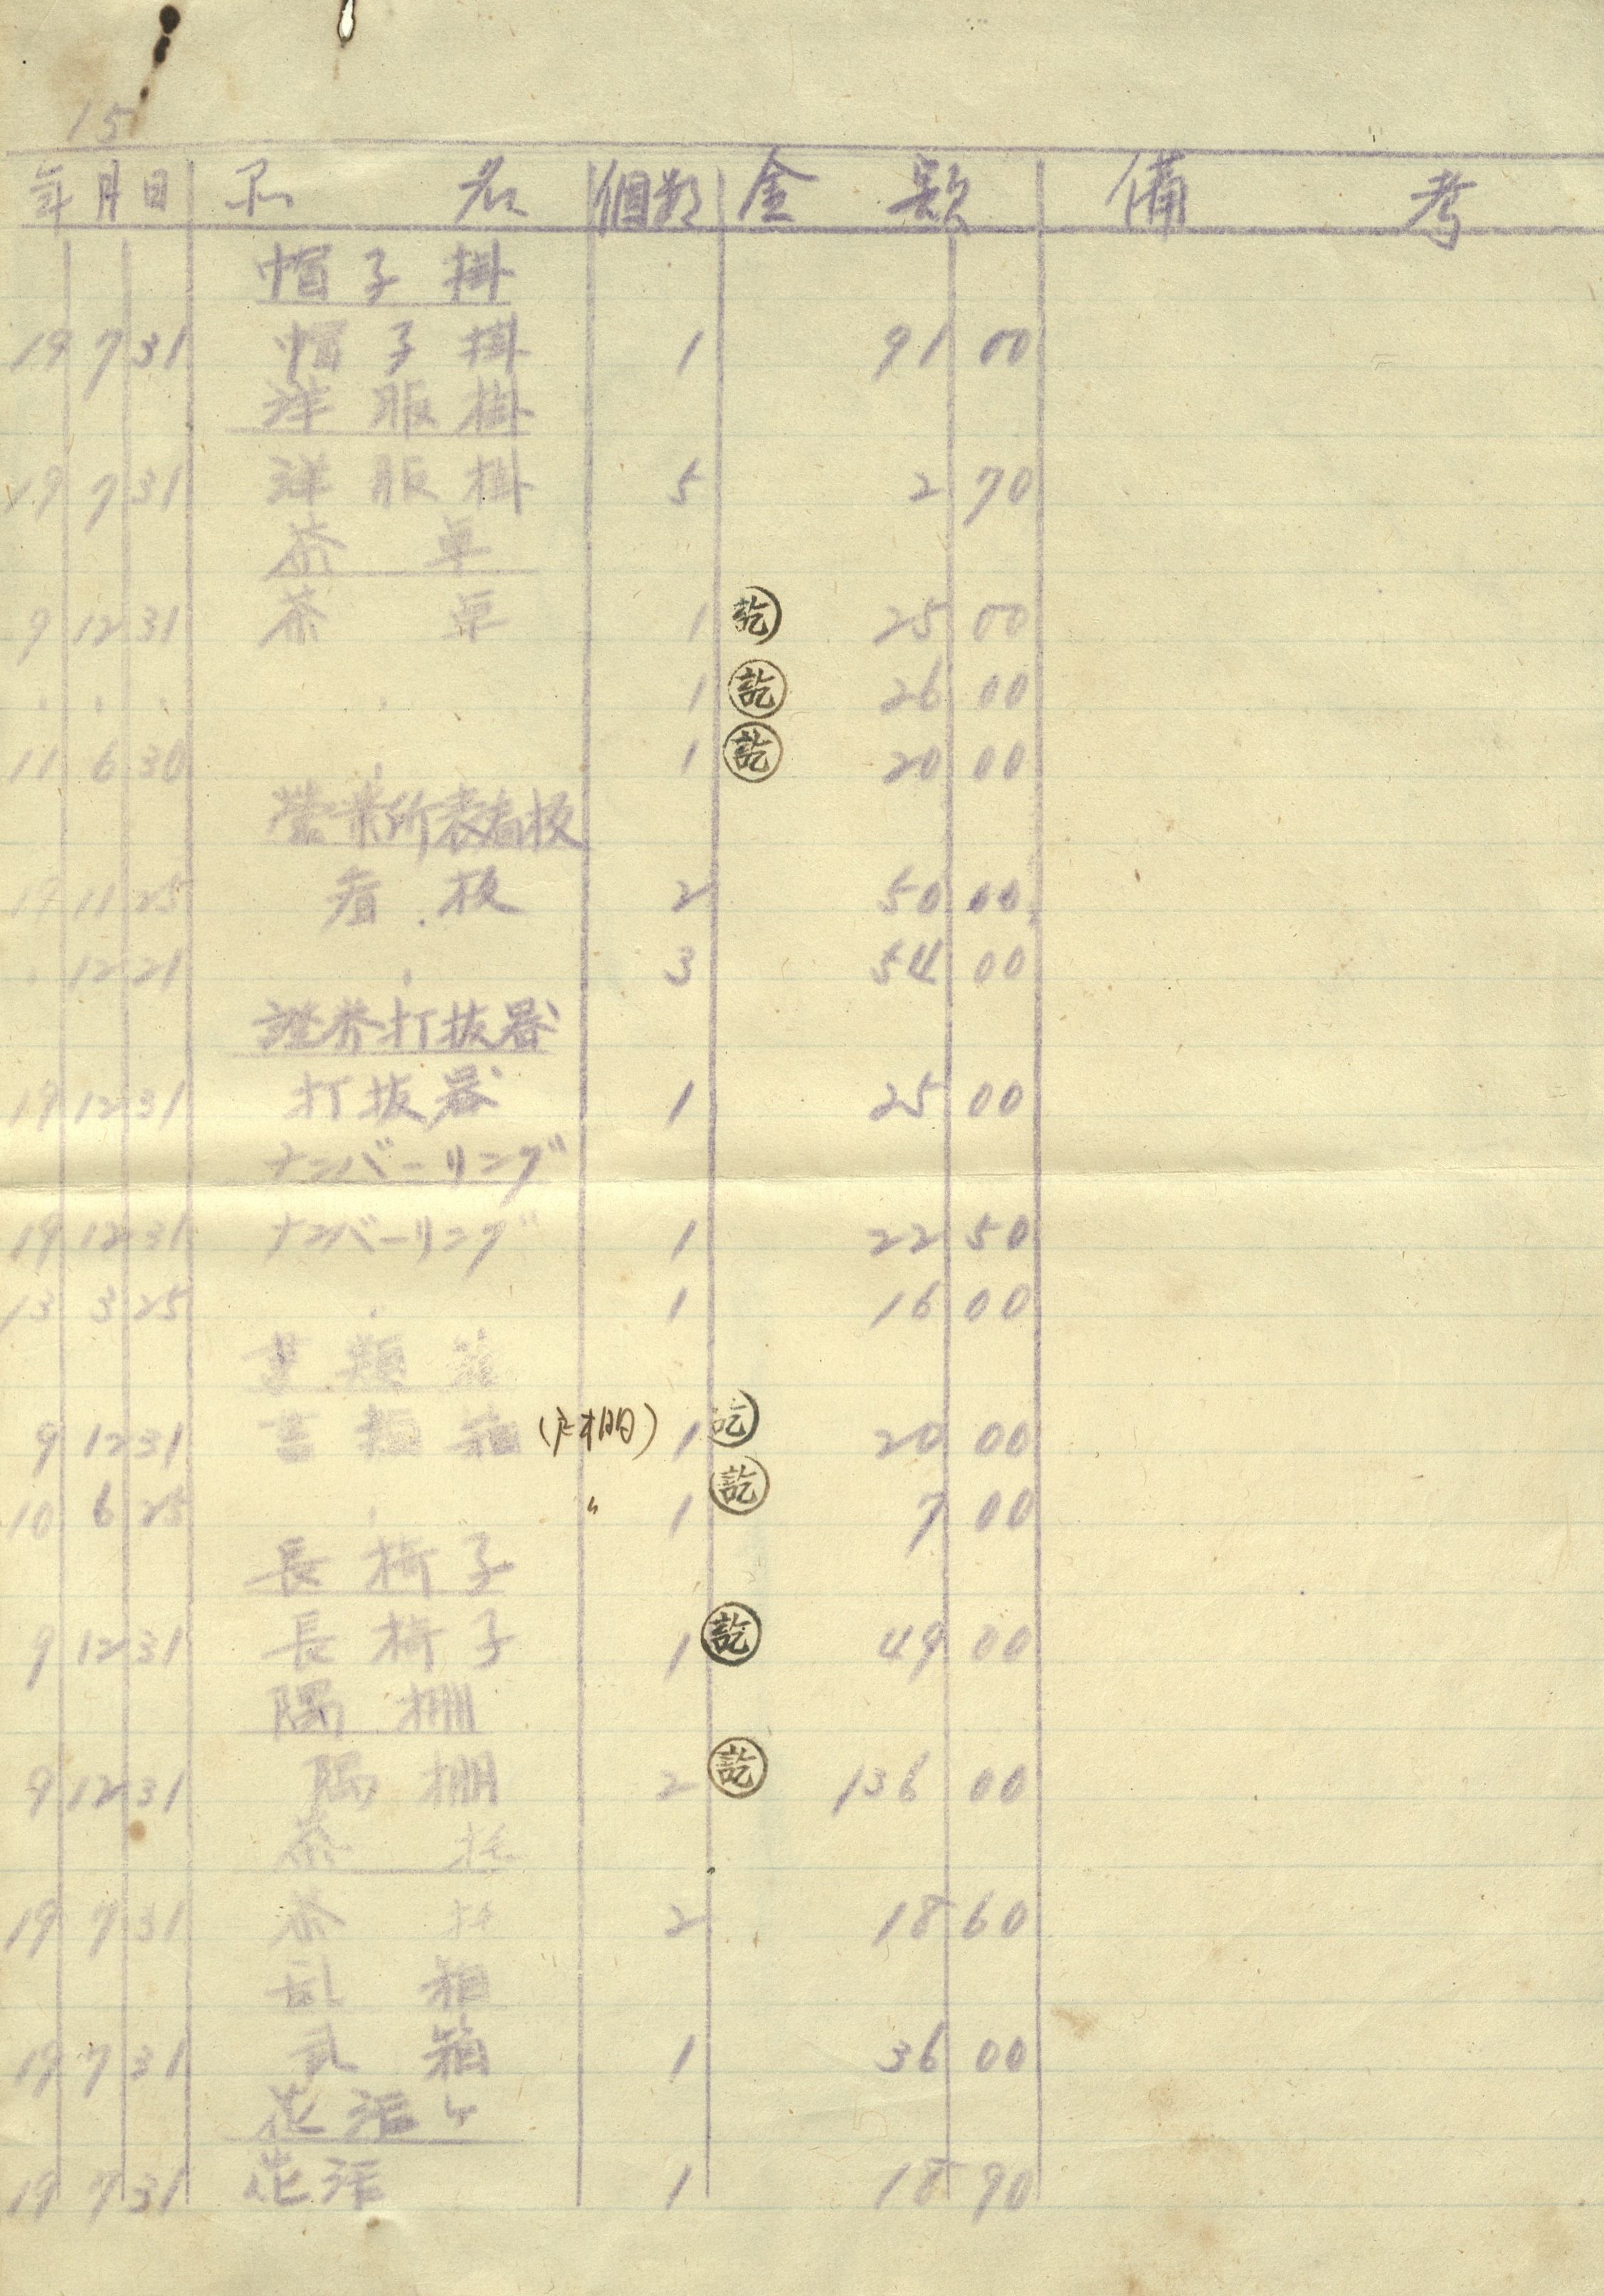 15
年月日 品名 個数 金額 備考
帽子掛
19 7 31 帽子掛 1 91 00
洋服掛
19 7 31 洋服掛 5 2 70
茶卓
9 12 31 茶卓 1 訖 25 00
〃 〃 〃 〃 1 訖 26 00
11 6 30 〃 1 訖 20 00
営業所表看板
19 11 25 看板 2 50 00
〃 12 21 〃 3 54 00
證券打抜器
19 12 31 打抜器 1 25 00
ナンバーリング
19 12 31 ナンバーリング 1 22 50
13 3 25 〃 1 16 00
書類箱
9 12 31 書類箱 (戸棚) 1 訖 20 00
10 6 25 〃 〃 1 訖 7 00
長椅子
9 12 31 長椅子 1 訖 49 00
隅棚
9 12 31 隅棚 2 訖 136 00
茶托
19 7 31 茶托 2 18 60
乱箱
19 7 31 乱箱 1 36 00
花活ケ
19 7 31 花活 1 18 90